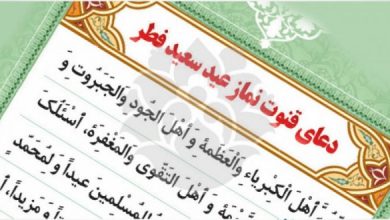 دعای قنوت نماز عید سعید فطر
أَهْلَ الْكِبْرِیاءِ وَالْعَظَمَةِ وَ أَهْلَ الْجُودِ وَالْجَبَرُوتِ وَ
وَ أَهْلَ التَّقْوَى وَالْمَغْفِرَةِ، أَسْئَلُكَ
الْمُسْلِمِینَ عِیداً وَ لِمُحَمَّدٍ
وَ مَزِیداً، أَ